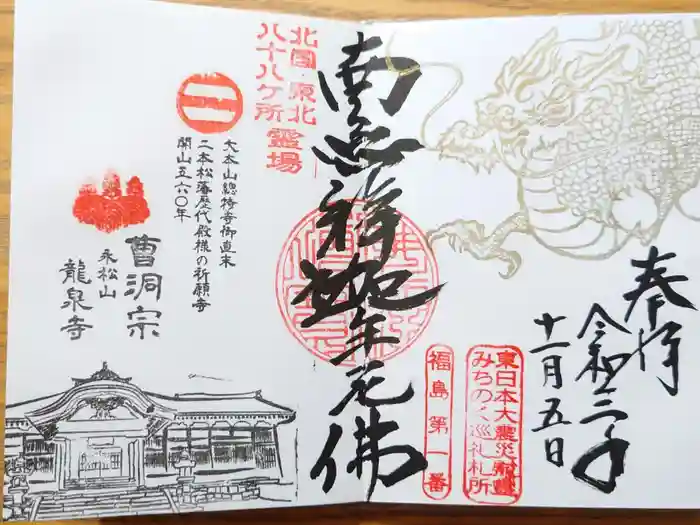 奉拝
令和三年
十一月五日
東日本大震災
みちのく巡礼札所
福島第一番
南無釋迦牟尼佛
北国
八十八ケ所
霊場
大本山總持寺御直末
二本松藩歴代殿様の祈願寺
開山五六〇年
曹洞宗
永松山
龍泉寺